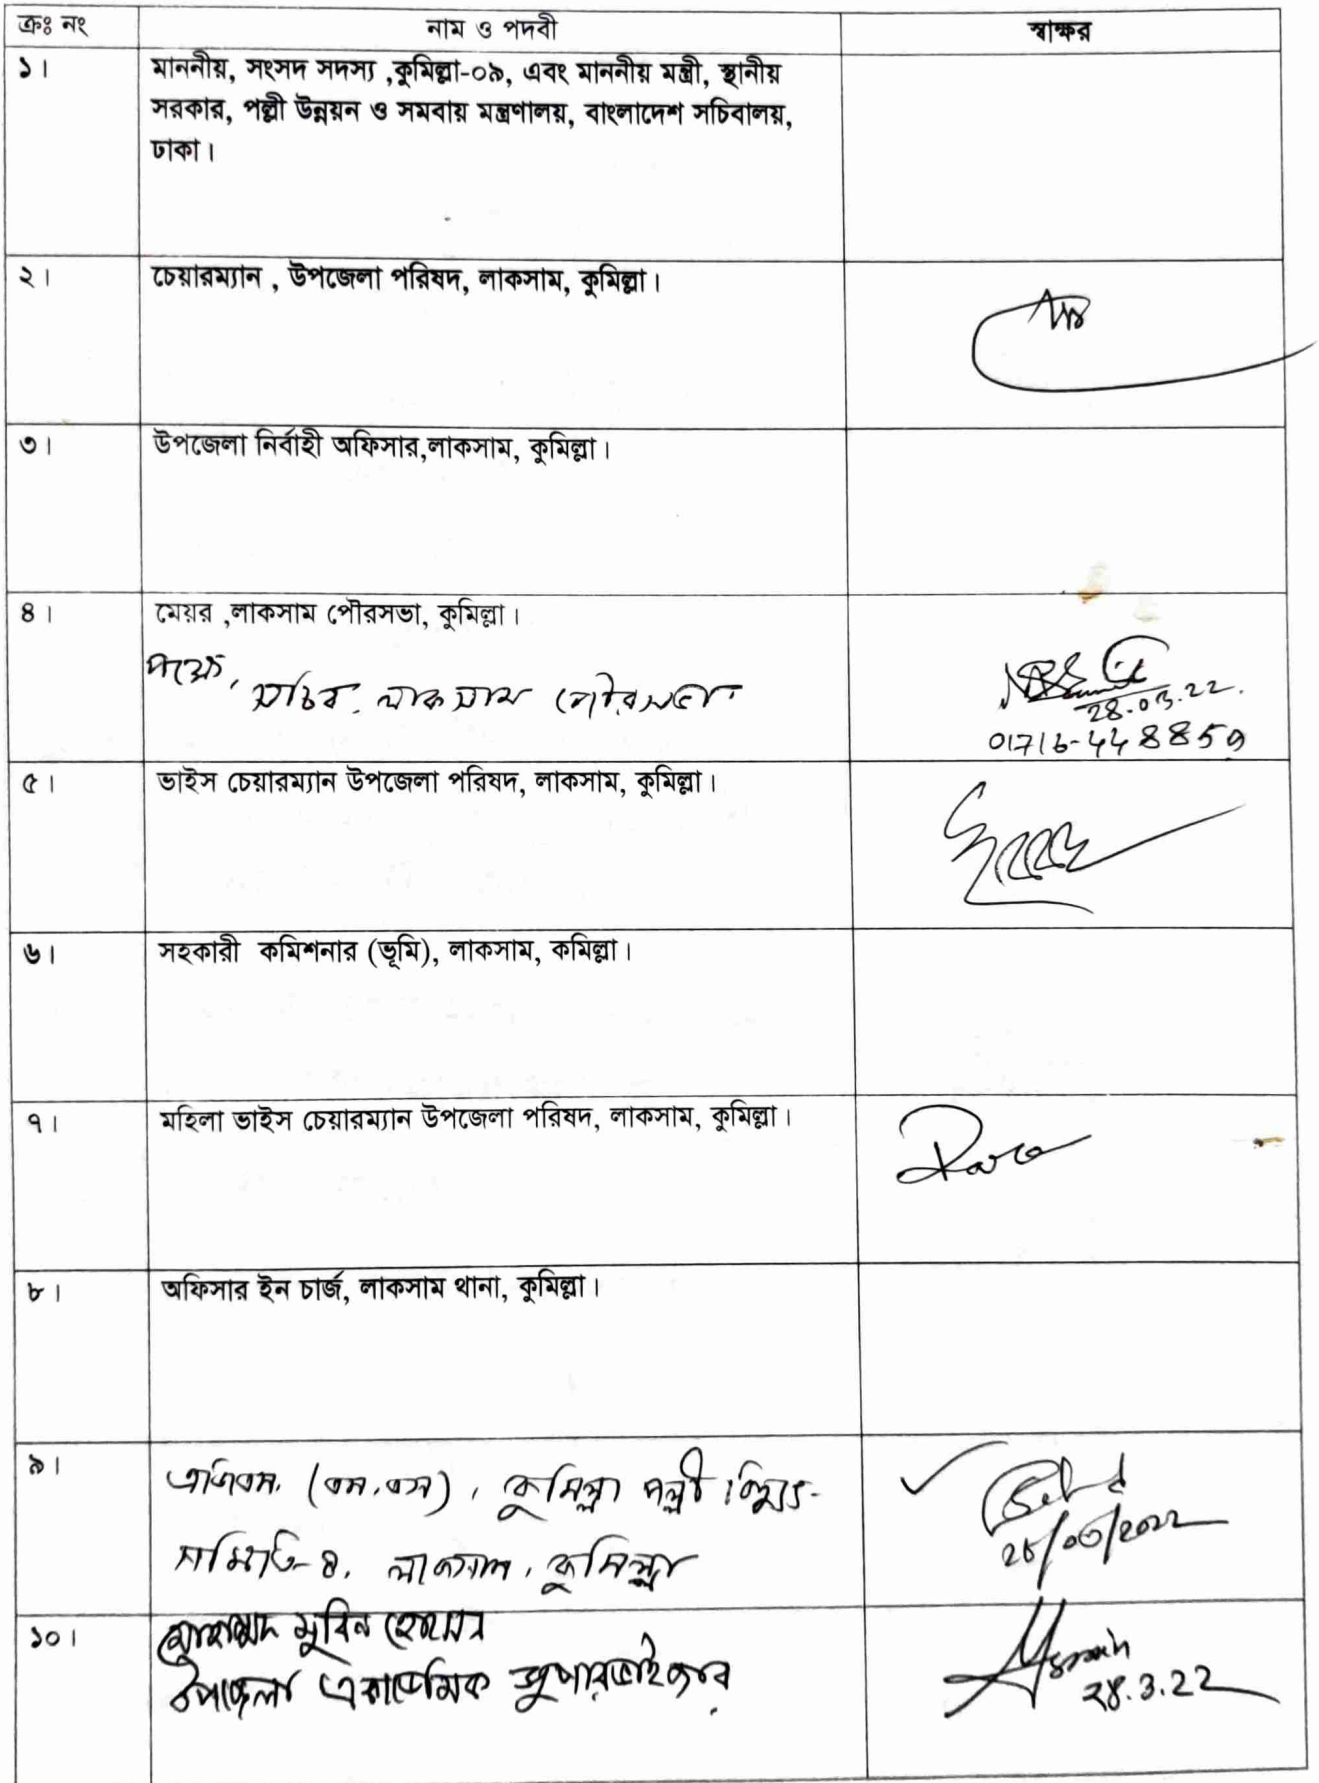 ক্রঃ নং নাম ও পদবী স্বাক্ষর
১। মাননীয়, সংসদ সদস্য ,কুমিল্লা-০৯, এবং মাননীয় মন্ত্রী, স্থানীয়
সরকার, পল্লী উন্নয়ন ও সমবায় মন্ত্রণালয়, বাংলাদেশ সচিবালয়,
ঢাকা।
২। চেয়ারম্যান , উপজেলা পরিষদ, লাকসাম, কুমিল্লা।
৩। উপজেলা নির্বাহী অফিসার,লাকসাম, কুমিল্লা।
৪। মেয়র ,লাকসাম পৌরসভা, কুমিল্লা।
পক্ষে,
সচিব, লাকসাম পৌরসভা
28.03.22.
01716-448859
৫। ভাইস চেয়ারম্যান উপজেলা পরিষদ, লাকসাম, কুমিল্লা।
৬। সহকারী কমিশনার (ভূমি), লাকসাম, কমিল্লা।
৭। মহিলা ভাইস চেয়ারম্যান উপজেলা পরিষদ, লাকসাম, কুমিল্লা।
৮। অফিসার ইন চার্জ, লাকসাম থানা, কুমিল্লা।
৯। এজিএম. (এম.এস), কুমিল্লা পল্লী বিদ্যুৎ-
সমিতি-৪, লাকসাম, কুমিল্লা
28/03/2022
১০। মোহাম্মদ মুবিন হোসেন
উপজেলা একাডেমিক সুপারভাইজার
28.3.22